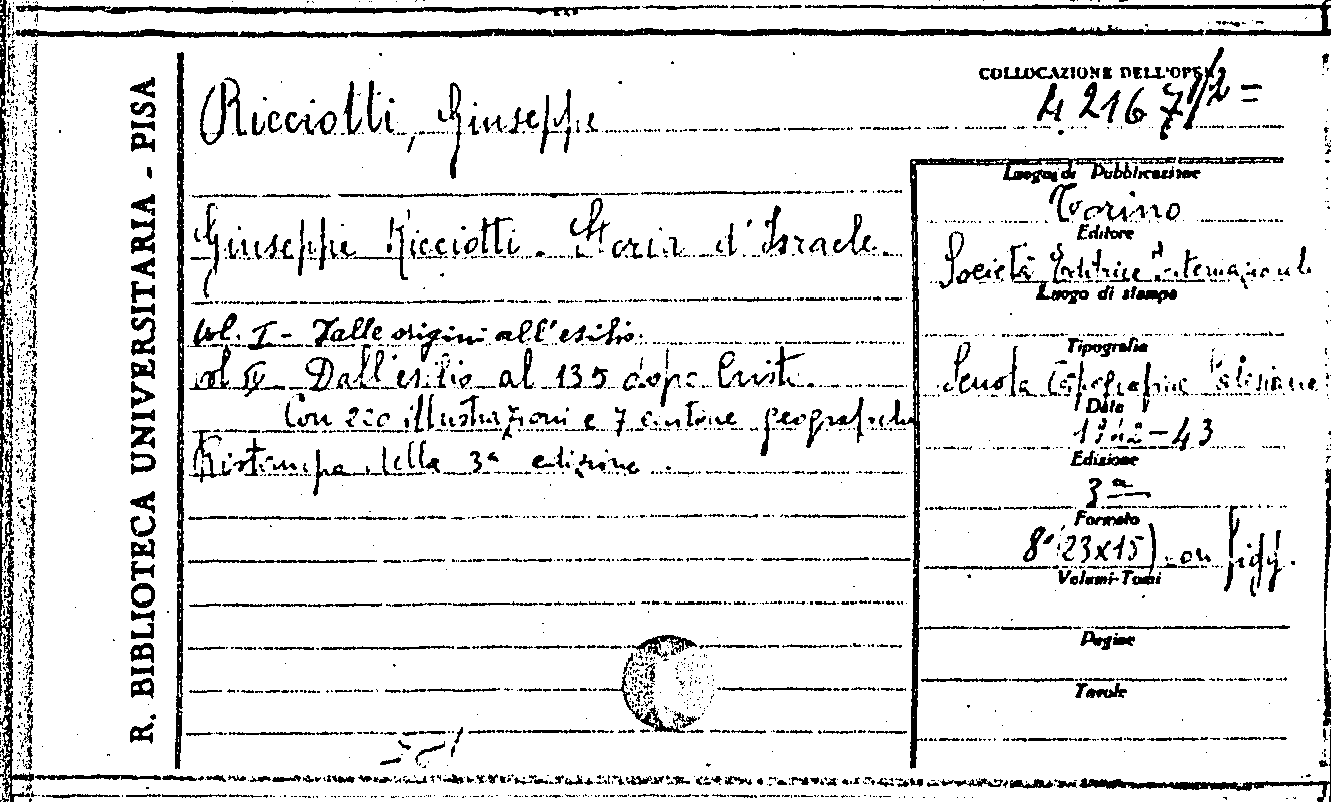 R. BIBLIOTECA UNIVERSITARIA - PISA
COLLOCAZIONE DELL'OPERA
4. 2167 1/2 =
Ricciotti, Giuseppe
Giuseppe Ricciotti. Storia d'Israele.
vol. I - Dalle origini all'esilio.
vol. II. Dall'esilio al 135 dopo Cristo.
Con 220 illustrazioni e 7 cartine geografiche
Ristampa della 3ª edizione.
Luogo di Pubblicazione
Torino
Editore
Società Editrice Internazionale
Luogo di stampa
Tipografia
Scuola Tipografica Salesiana
Data
1942-43
Edizione
3ª
Formato
8° (23x15) con figg.
Volumi-Tomi
Pagine
Tavole